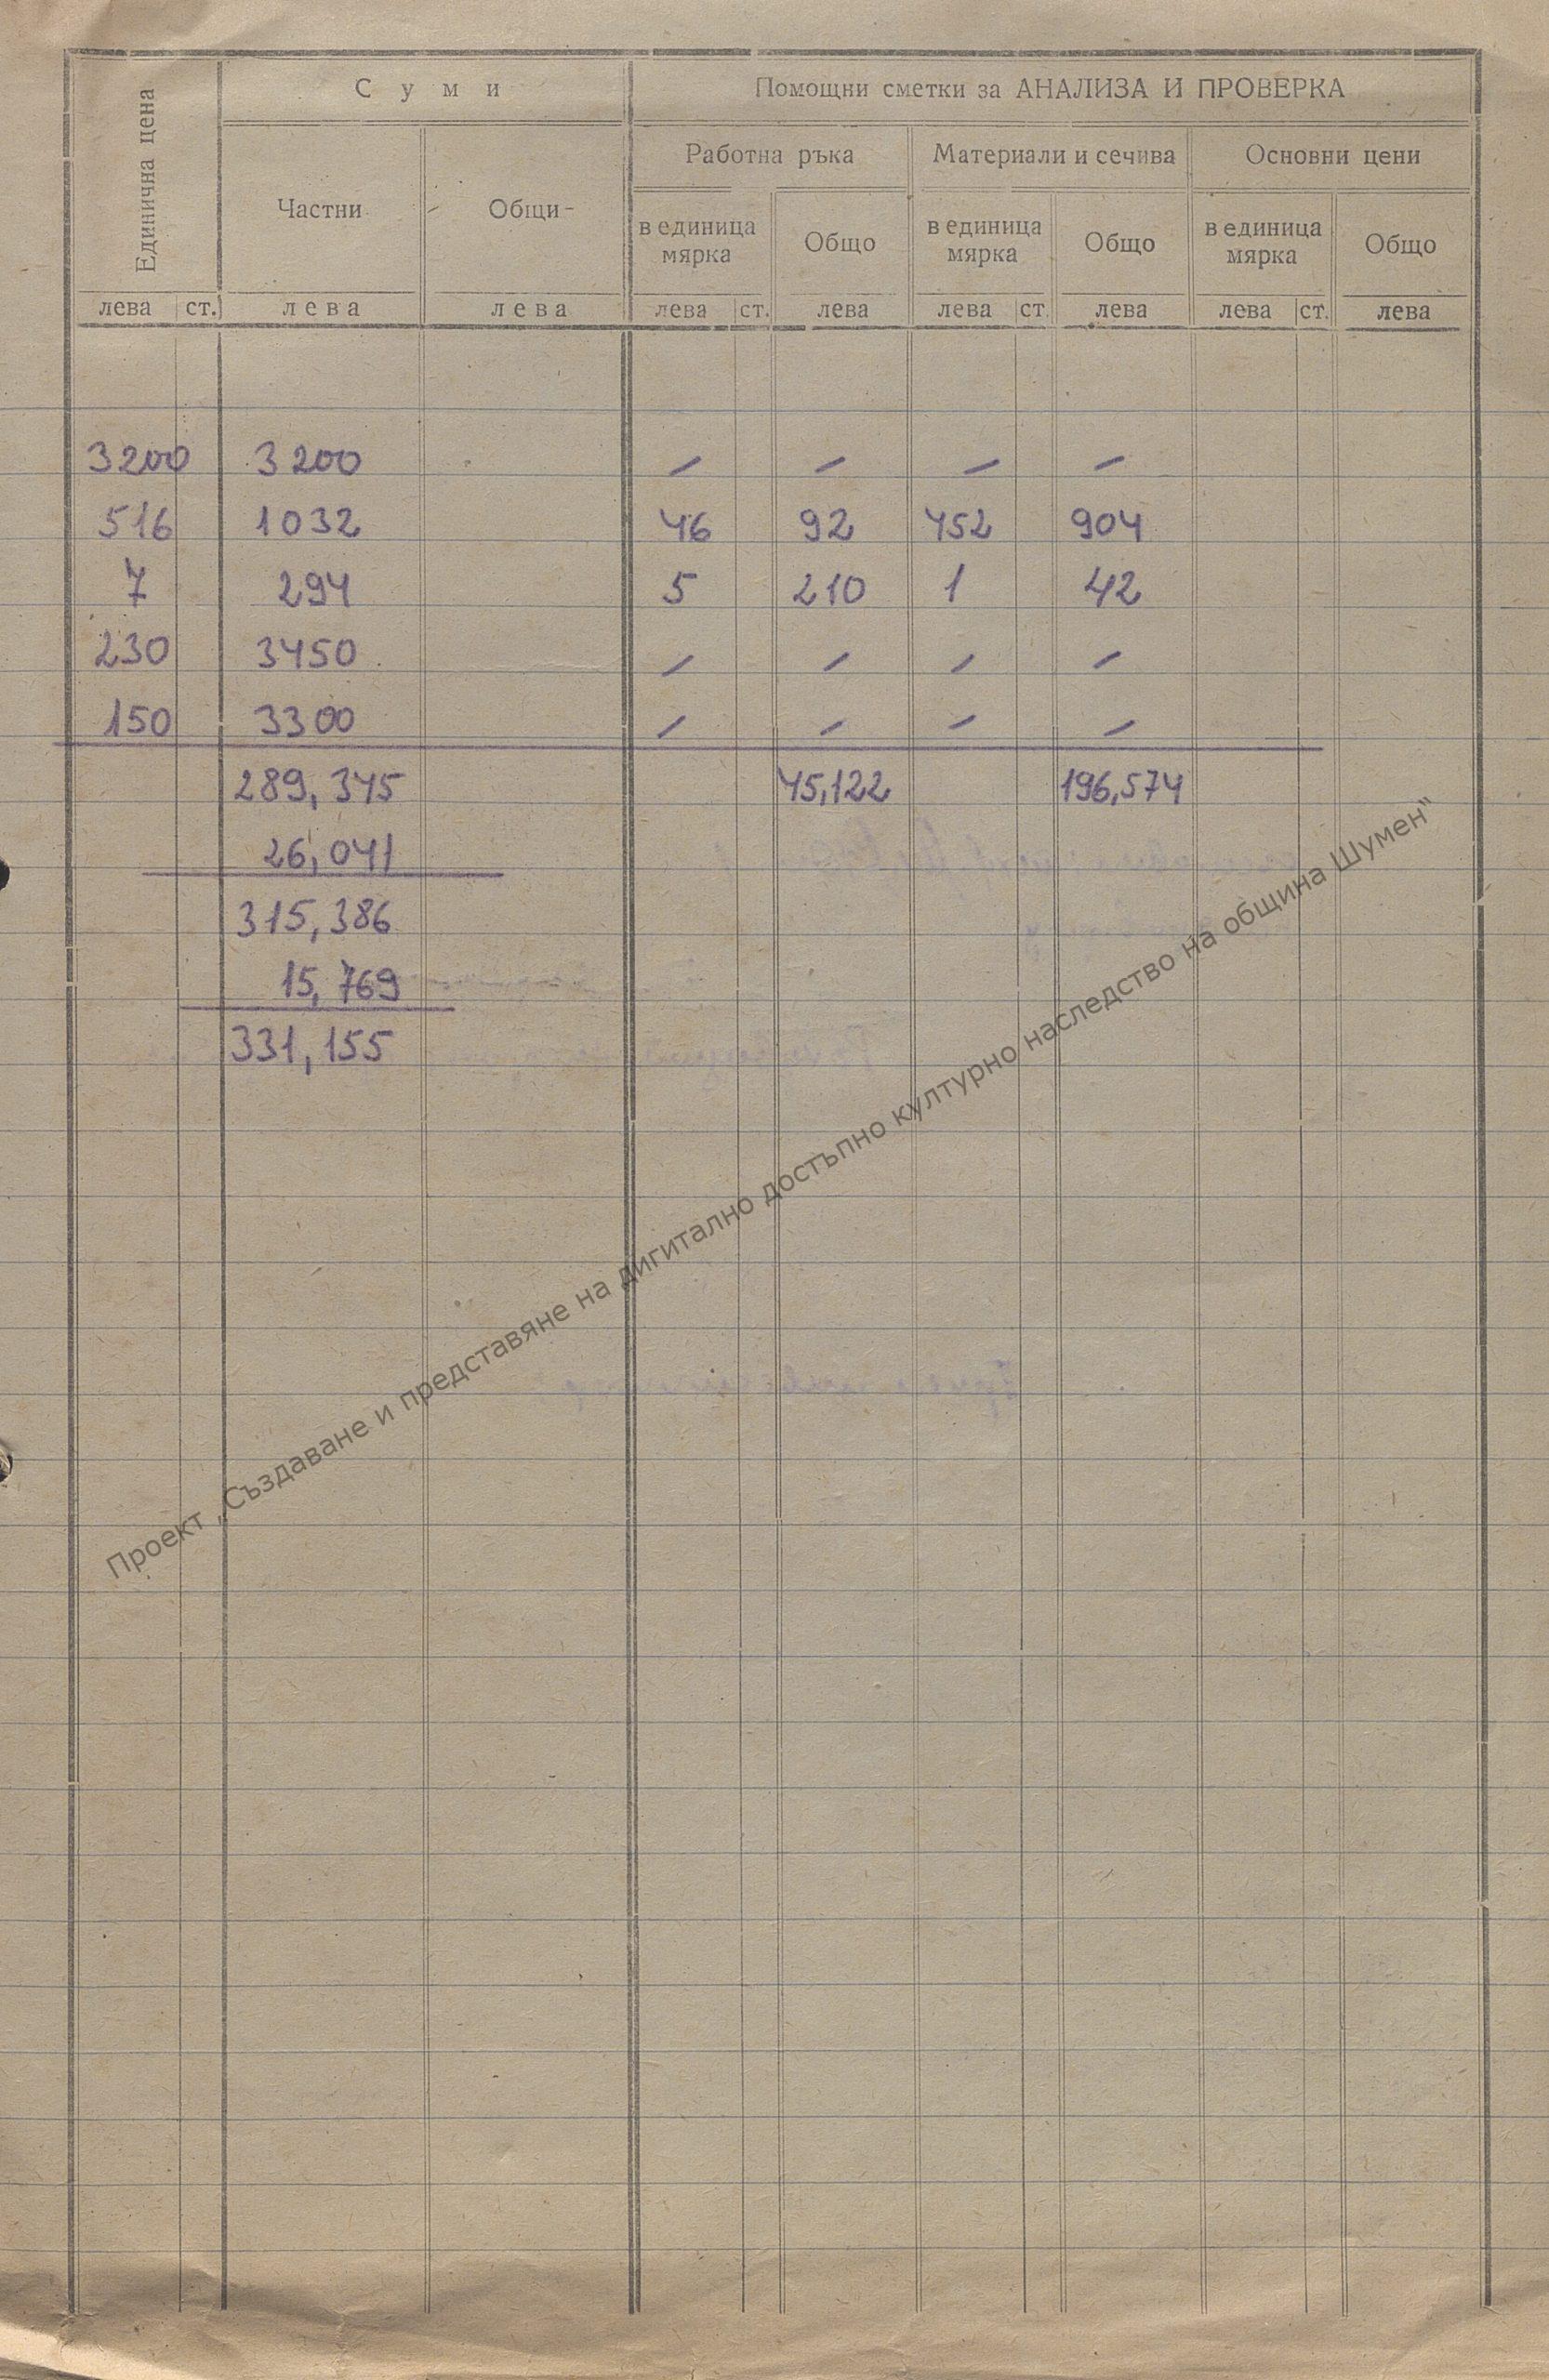 Единична цена
Суми
Помощни сметки за АНАЛИЗА И ПРОВЕРКА
Частни Общи
Работна ръка Материали и сечива Основни цени
в единица мярка Общо в единица мярка Общо в единица мярка Общо
лева ст. лева лева лева ст. лева лева ст. лева лева ст. лева
3200 3200 – – – –
516 1032 46 92 452 904
7 294 5 210 1 42
230 3450 – – – –
150 3300 – – – –
289,345 45,122 196,574
26,041
315,386
15,769
331,155
Проект „Създаване и представяне на дигитално достъпно културно наследство на община Шумен“